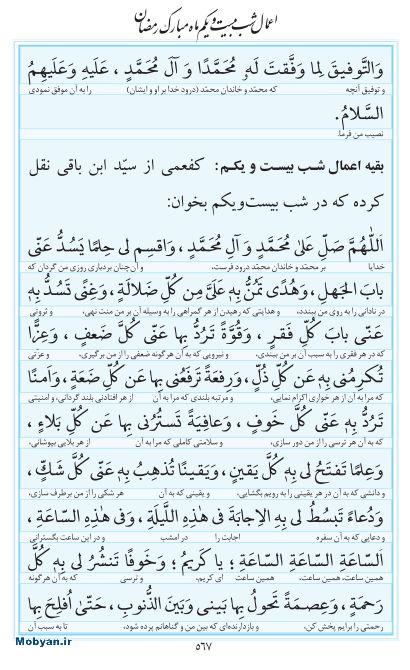 اعمال شب بیست و یکم ماه مبارک رمضان
وَالتَّوفيقَ لِما وَفَّقتَ لَهُ مُحَمَّدًا وَ آلَ مُحَمَّدٍ ، عَلَيهِ وَعَلَيهِمُ
و توفیق آنچه که محمّد و خاندان محمّد (درود خدا بر او و ایشان) را به آن موفق نمودی
السَّلامُ.
نصیب من فرما.
بقیه اعمال شب بیست و یکم: کفعمی از سیّد ابن باقی نقل
کرده که در شب بیست‌ویکم بخوان:
اَللّٰهُمَّ صَلِّ عَلىٰ مُحَمَّدٍ وَ آلِ مُحَمَّدٍ ، وَاقسِم لى حِلمًا يَسُدُّ عَنّى
خدایا بر محمّد و خاندان محمّد درود فرست، و آن‌چنان بردباری روزی من گردان که
بابَ الجَهلِ، وَهُدًى تَمُنُّ بِهِ عَلَىَّ مِن كُلِّ ضَلالَةٍ، وَغِنًى تَسُدُّ بِهِ
در نادانی را به روی من ببندد، و هدایتی که رهیدن از هر گمراهی را به وسیله آن بر من منت نهی، و ثروتی
عَنّى بابَ كُلِّ فَقرٍ ، وَ قُوَّةً تَرُدُّ بِها عَنّى كُلَّ ضَعفٍ ، وَعِزًّا
که در هر فقری را به سبب آن بر من ببندی، و نیرویی که به آن هرگونه ضعفی را از من برگیری، و عزّتی
تُكرِمُنى بِهِ عَن كُلِّ ذُلٍّ، وَرِفعَةً تَرفَعُنى بِها عَن كُلِّ ضَعَةٍ، وَاَمنًا
که مرا به آن از هر خواری اکرام نمایی، و مرتبه بلندی که مرا به آن از هر افتادنی بلند گردانی، و امنیتی
تَرُدُّ بِهِ عَنّى كُلَّ خَوفٍ ، وَ عافِيَةً تَستُرُنى بِها عَن كُلِّ بَلاءٍ ،
که به آن هر ترسی را از من دور سازی، و سلامتی کاملی که مرا به آن از هر بلایی بپوشانی،
وَعِلمًا تَفتَحُ لى بِهِ كُلَّ يَقينٍ، وَيَقينًا تُذهِبُ بِهِ عَنّى كُلَّ شَكٍّ ،
و دانشی که به آن در هر یقینی را به رویم بگشایی، و یقینی که به آن هر شکی را از من برطرف سازی،
وَ دُعاءً تَبسُطُ لى بِهِ الاِجابَةَ فى هٰذِهِ اللَّيلَةِ، وَفى هٰذِهِ السّاعَةِ ،
و دعایی که به آن سفره اجابت را در امشب و در این ساعت بگسترانی
اَلسّاعَةِ السّاعَةِ السّاعَةِ ؛ يا كَريمُ ؛ وَ خَوفًا تَنشُرُ لى بِهِ كُلَّ
همین ساعت، همین ساعت، همین ساعت ای کریم، و ترسی که به آن هرگونه
رَحمَةٍ، وَ عِصمَةً تَحولُ بِها بَينى وَ بَينَ الذُّنوبِ ، حَتّىٰ اُفلِحَ بِها
رحمتی را برایم پخش کن، و بازدارنده‌ای که بین من و گناهانم پرده شود، تا به سبب آن
۵۶۷
Mobyan.ir